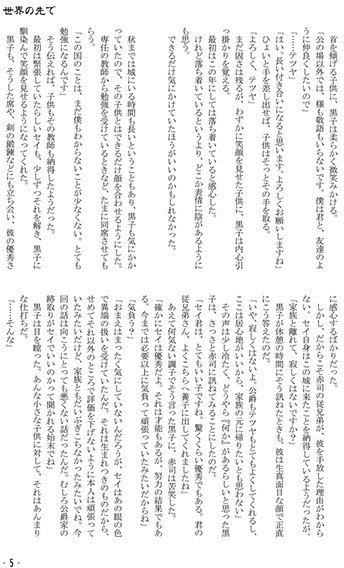 世界の先で
首を傾げる子供に、黒子は柔らかく微笑みかける。
「公の場以外では、様も敬語もいらないです。僕は君と、友達のよ
うに仲良くしたいので」
「……テツヤ」
「はい。長い付き合いになると思います。よろしくお願いしますね」
ひょいと手を差し出せば、子供はそっとその手を取る。
「よろしく、テツヤ」
まだ固さは残るが、わずかに笑顔を見せた子供に、黒子は内心引
っ掛かりを覚える。
最初はこの年にしては落ち着いていると感心した。
けれど落ち着いているというより、どこか表情に陰があるように
も思う。
できるだけ気にかけていたほうがいいのかもしれなかった。
秋までは城にいる時間も長いということもあり、黒子も気にかか
っていたので、その子供とはできるだけ顔を合わせるようにした。
専任の教師から勉強を受けているときなど、たまに同席させても
らう。
「この国のことは、まだ僕もわからないことが少なくない。とても
勉強になるんです」
そう伝えれば、子供もその教師も納得したようだった。
最初は緊張していたらしいセイも、少しずつそれを解き、黒子に
馴染んで笑顔を見せるようになってくれた。
黒子も、そうした席や、剣の鍛錬などにも立ち会い、彼の優秀さ
に感心するばかりだった。
しかし、だからこそ赤司の従兄弟が、彼を手放した理由がわから
ない。セイ自身はこの城に来たことを納得しているようだったが。
「家族と離れて、寂しくはないですか？」
黒子が休憩の時間にそう訊ねたときも、彼は生真面目な顔で正直
にこう答えたのだ。
「いや、寂しくはないよ。公爵もテツヤもとてもよくしてくれるし、
ここは居心地がいいから、家族の元に帰りたいとも思わない」
その声は少し冷たく、どうやら「何か」があるらしいと思った黒
子は、さっさと赤司に訊ねてみることにしたのだ。
「セイ君は、とてもいい子ですね。驚くくらい優秀でもある。君の
従兄弟さん、よくこちらへ養子に出してくれましたね」
あえて何気ない調子でそう言った黒子に、赤司は苦笑した。
「確かにセイは優秀だよ。それは才能もあるが、努力の結果でもあ
る。今までは必要以上に気負って頑張っていたみたいだからね」
「気負う？」
「おまえはまったく気にしていないんだろうが、セイはあの眼の色
で異端の扱いを受けていたんだ。それは生まれつきのものだから、
せめてそれ以外のところで評価を下げないように本人は頑張って
いたみたいだけど、家族ともだいぶぎこちなかったみたいでね。今
回の話は向こうにとっても悪くない話だったんだ。むしろ公爵家の
跡取りがセイでいいのかって聞かれる始末でね」
黒子は目を瞠った。あんな小さな子供に対して、それはあんまり
な仕打ちだ。
「……そんな」
- 5 -